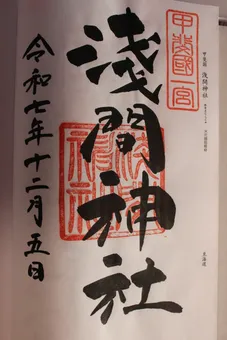 甲斐國一宮
甲斐国 浅間神社
淺間神社
令和七年十二月五日